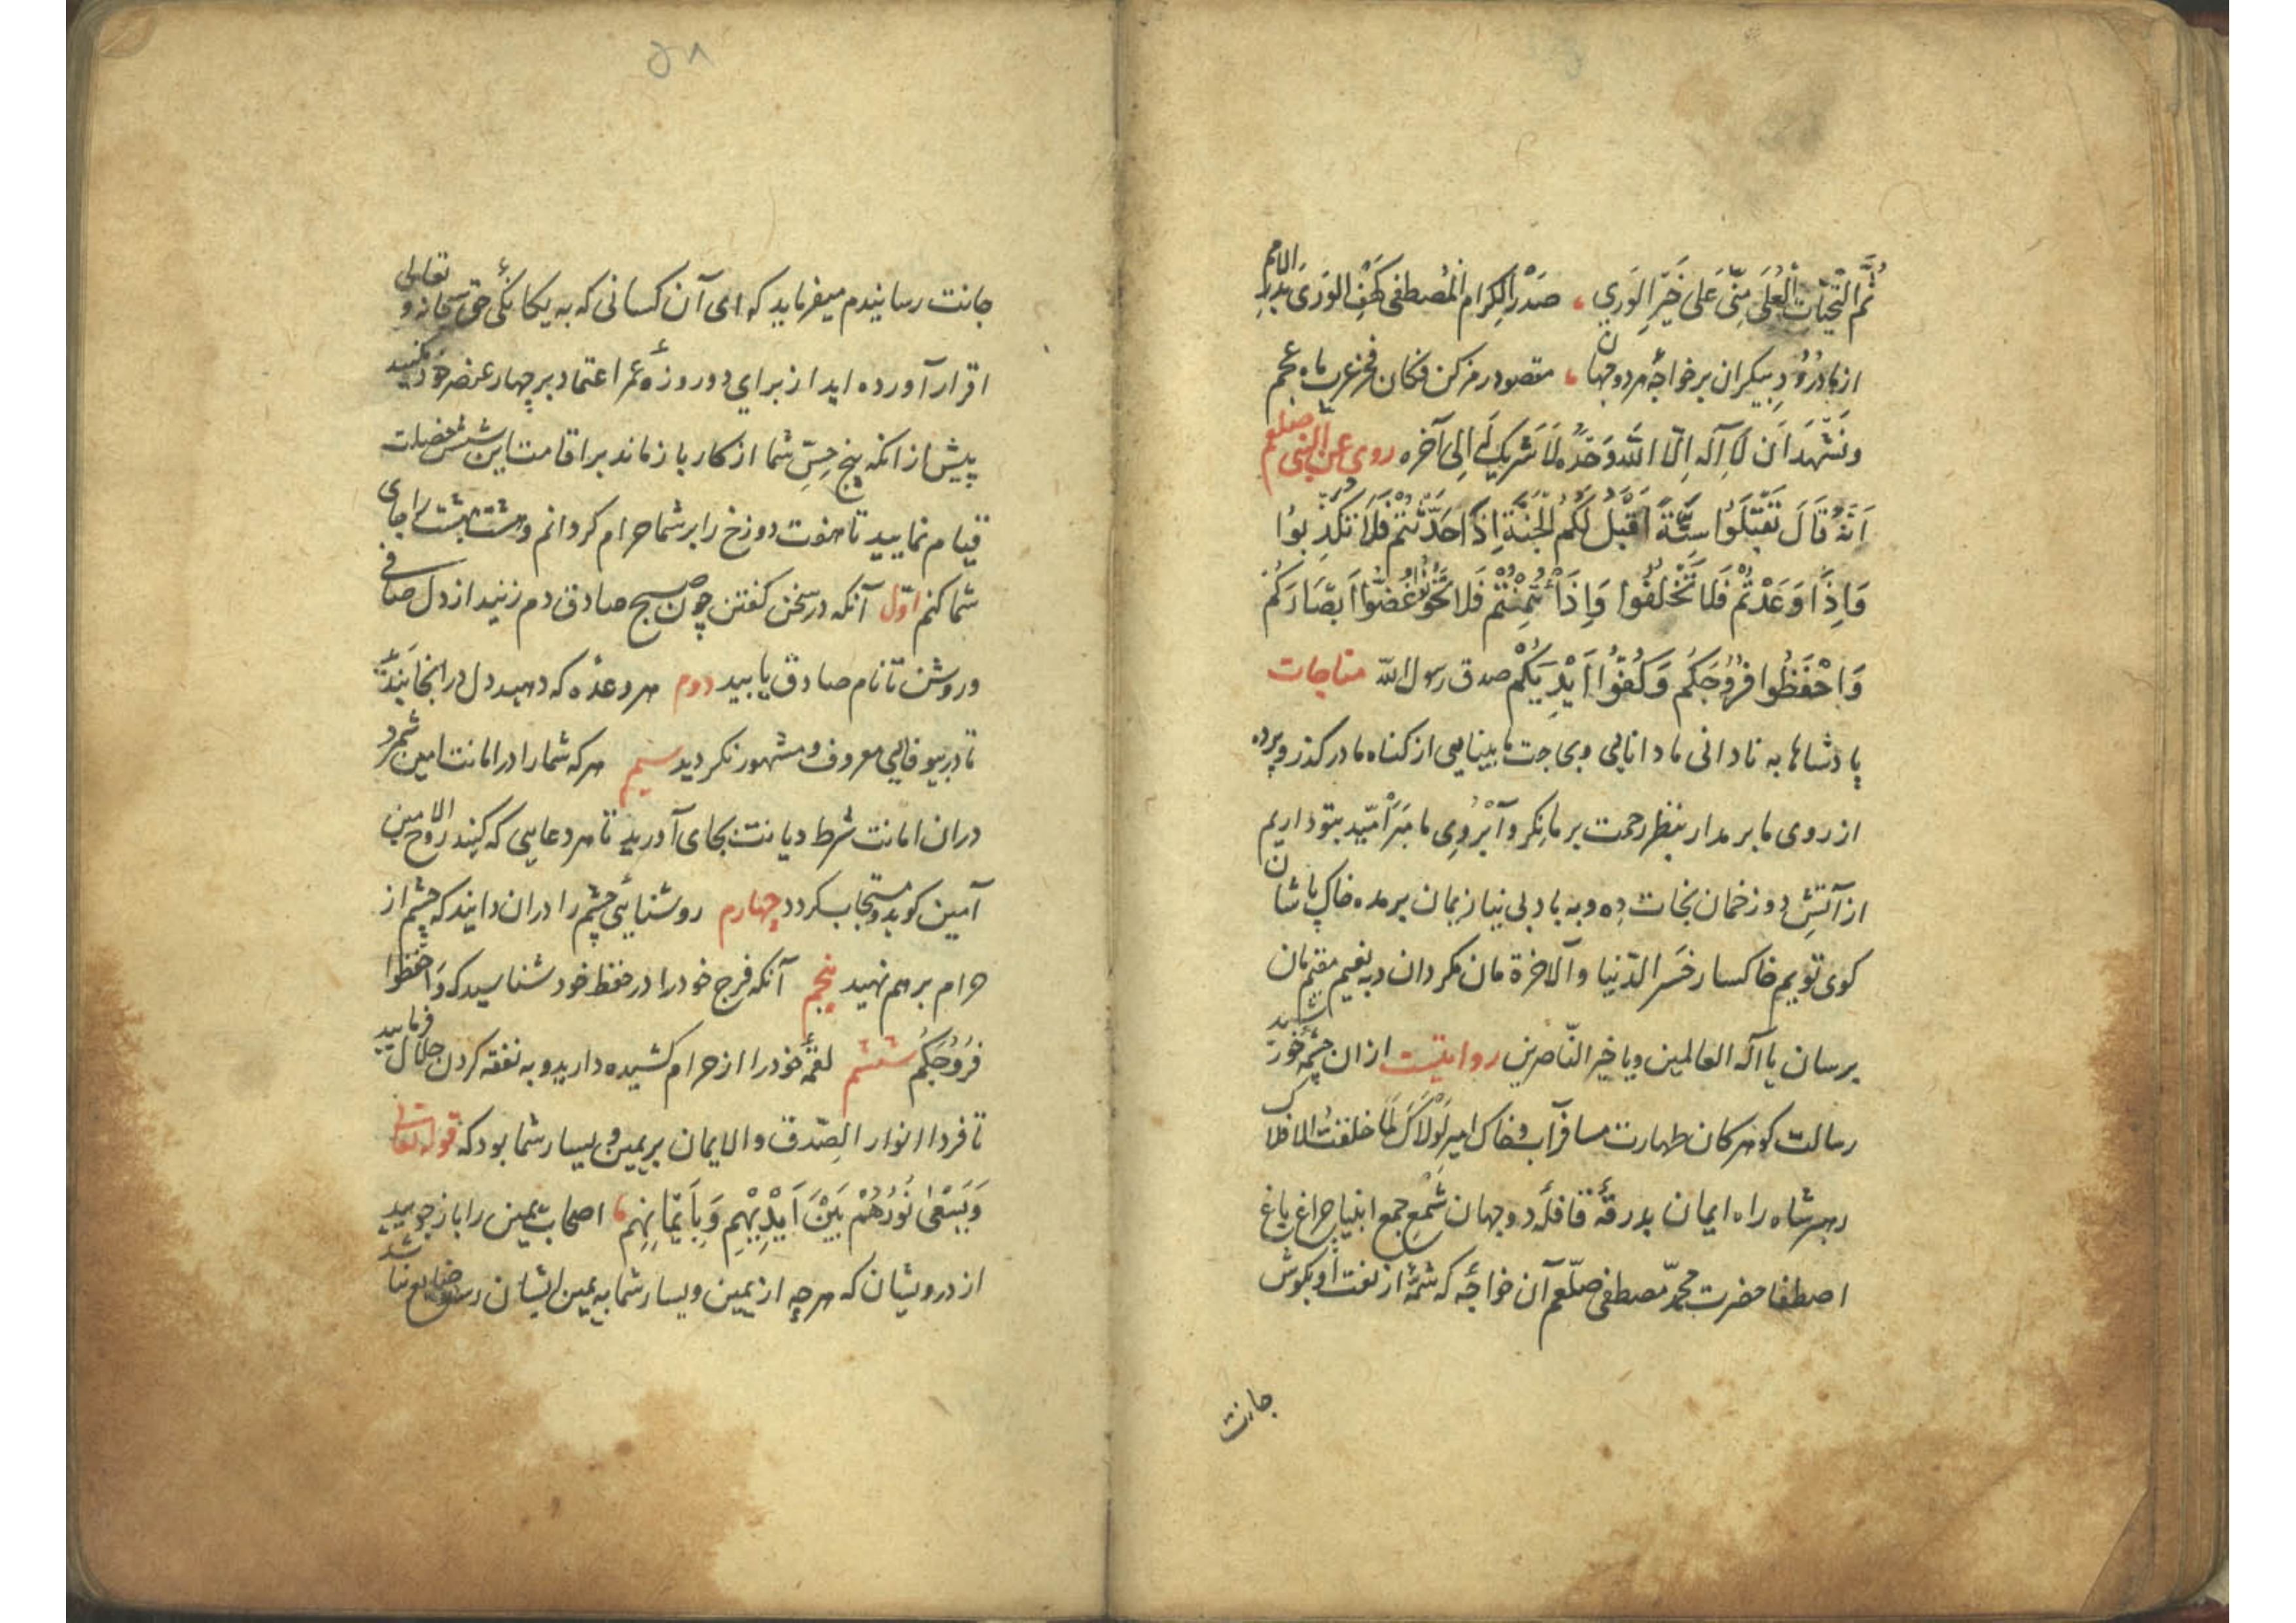 ثُمَّ التَّحِیّات العُلی مِنّی عَلی خَیرِ الوَری ، صَدرِ الکِرام المُصطفی کهفِ الوَرَی بَدرِ الامم
از ما دُرُودِ بیکران بر خواجهٔ هر دو جهان ، مقصود رمز کن فکان فخر عرب ماه عجم
ونَشهَد اَن لَا آله اِلّا الله وَحَدَهُ لَا شَریکَ لَه اِلی آخره روی عن النبی صلعم
اَنَّهُ قَالَ تَقَبَّلُوا سِتَّةً اَقبَل لَکُم الجَنَّة اِذَا حَدَّثتُم فَلَا تکذِبوُا
وَاِذَا وَعَدتُم فَلَا تَخلفُوا وَاِذَا ئتُمِنتُم فَلَا تَخُونُوا غُضّوُا اَبصَارَکُم
وَاحفَظُوا فُرُوُجَکُم وَکُفوُّا اَیدِیَکُم صدق رسول الله مناجات
پادشاها به نادانی ما دانایی وبی حاجت ما بینایی از کناه ما درکذر وپرده
از روی ما بر مدار بنظر رحمت بر ما نِکر وآبروی ما مَبَر اُمّید بتو داریم
از آتشِ دوزخمان نجات دِه وبه باد بی نیازیمان بر مده خاک پاشان
کوی توییم خاکسار خَسَر الدّنیا والآخرة مان مکردان وبه نعیم مقیم مان
برسان یا آله العالمین ویا خیر النّاصرین روایتست از ان چشمهٔ خورشید
رسالت کوهر کان طهارت مسافر آب وخاک امیر لَولَاکَ لَما خلقتُ الافلاک
رهبر شاه راه ایمان بدرقهٔ قافلهٔ دو جهان شَمعِ جمع انبیا چراغ باغ
اصطفا حضرت محمّد مصطفی صلّعم آن خواجهٔ که شمّهٔ از نعت او بکوش
جانت
۵۸
جانت رسانیدم میفرماید که ای آن کسانی که به یکانکئ حق سبحانه و تعالی
اقرار آورده اید از برای دو روزهٔ عمر اعتماد بر چهار عنصر خود مکنید
پیش از انکه پنج حِسِّ شما از کار باز ماند بر اقامت این شش خصلت
قیام نمایید تا هفت دوزخ را بر شما حرام کردانم وهشت بهشت را جای
شما کنم اوّل آنکه در سخن کفتن چون صبح صادق دم زنید از دل صافی
وروشن تا نام صادق یابید دوم هر وعدهٔ که دهید دل در انجا بندید
تا در بیوفایی معروف ومشهور نکردید سیم هر که شما را در امانت امین شمرد
دران امانت شرط دیانت بجای آورید تا هر دعایی که کنید روح الامین
آمین کوید ومستجاب کردد چهارم روشنایئ چشم را دران دانید که چشم از
حرام بر هم نهید پنجم آنکه فرج خود را در حفظ خود شناسید که وَاحفظوا
فُرُوُجَکُم ششم لقمهٔ خود را از حرام کشیده دارید وبه نفقه کردن حلال فرمایید
تا فردا انوار الصّدق والایمان بر یمین ویسار شما بود که قوله تعالی
وَیَسعٰی نُورُهُم بَینَ اَیدِیهِم وَبِاَیمَانِهِم ، اصحاب یمین را باز جویید
از درویشان که هر چه از یمین ویسار شما به یمین ایشان رسد ضایع نباشد